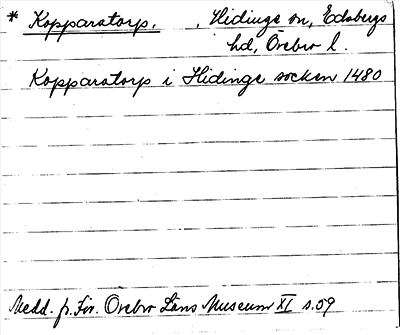 * Kopparatorp. , Hidinge sn, Edsbergs
hd, Örebro l.
Kopparatorp i Hidinge socken 1480
Medd. fr. För. Örebro Läns Museum XI s. 09